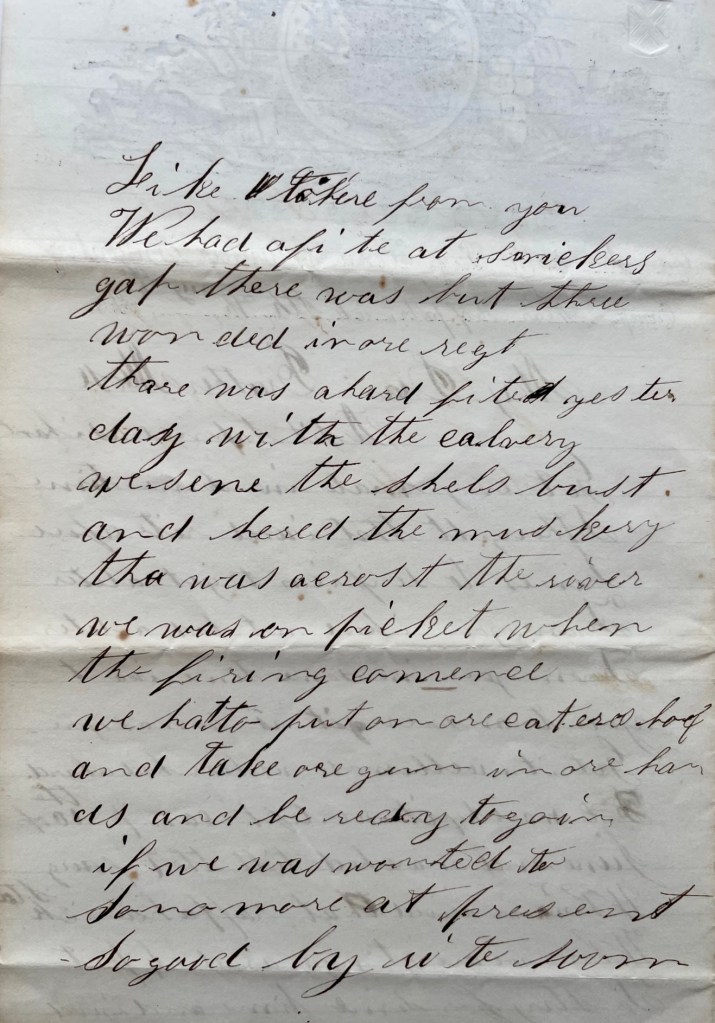 Like to here from you
We had a fite at snickers
gap there was but three
wonded in ore regt
thare was a hard fite yester
day with the calvery
we sene the shels bust
and hered the muskery
tha was acrost the river
we was on picket when
the firing comence
we hatto put on ore
and take ore gun in ore han
ds and be redy to go in
if we was wonted to
So no more at present
So good by rite soon